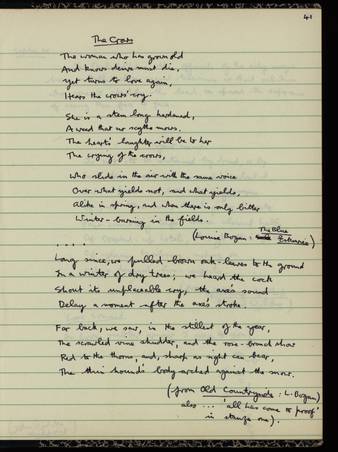 41
The Crows
The woman who has grown old
And knows desire must die,
Yet turns to love again,
Hears the crows' cry.
She is a stem long hardened,
A weed that no scythe mows.
The heart's laughter will be to her
The crying of the crows,
Who slide in the air with the same voice
Over what yields not, and what yields,
Alike in spring, and when there is only bitter
Winter-burning in the fields.
(Louise Bogan: The Blue Estuaries)
. . . . .
Long since, we pulled brown oak-leaves to the ground
In a winter of dry trees; we heard the cock
Shout its unplaceable cry, the axe's sound
Delay a moment after the axe's stroke.
Far back, we saw, in the stillest of the year,
The scrawled vine shudder, and the rose-branch show
Red to the thorns, and, sharp as sight can bear,
The thin hound's body arched against the snow.
(from Old Countryside: L. Bogan)
also ... 'all has come to proof'
in stanza one).